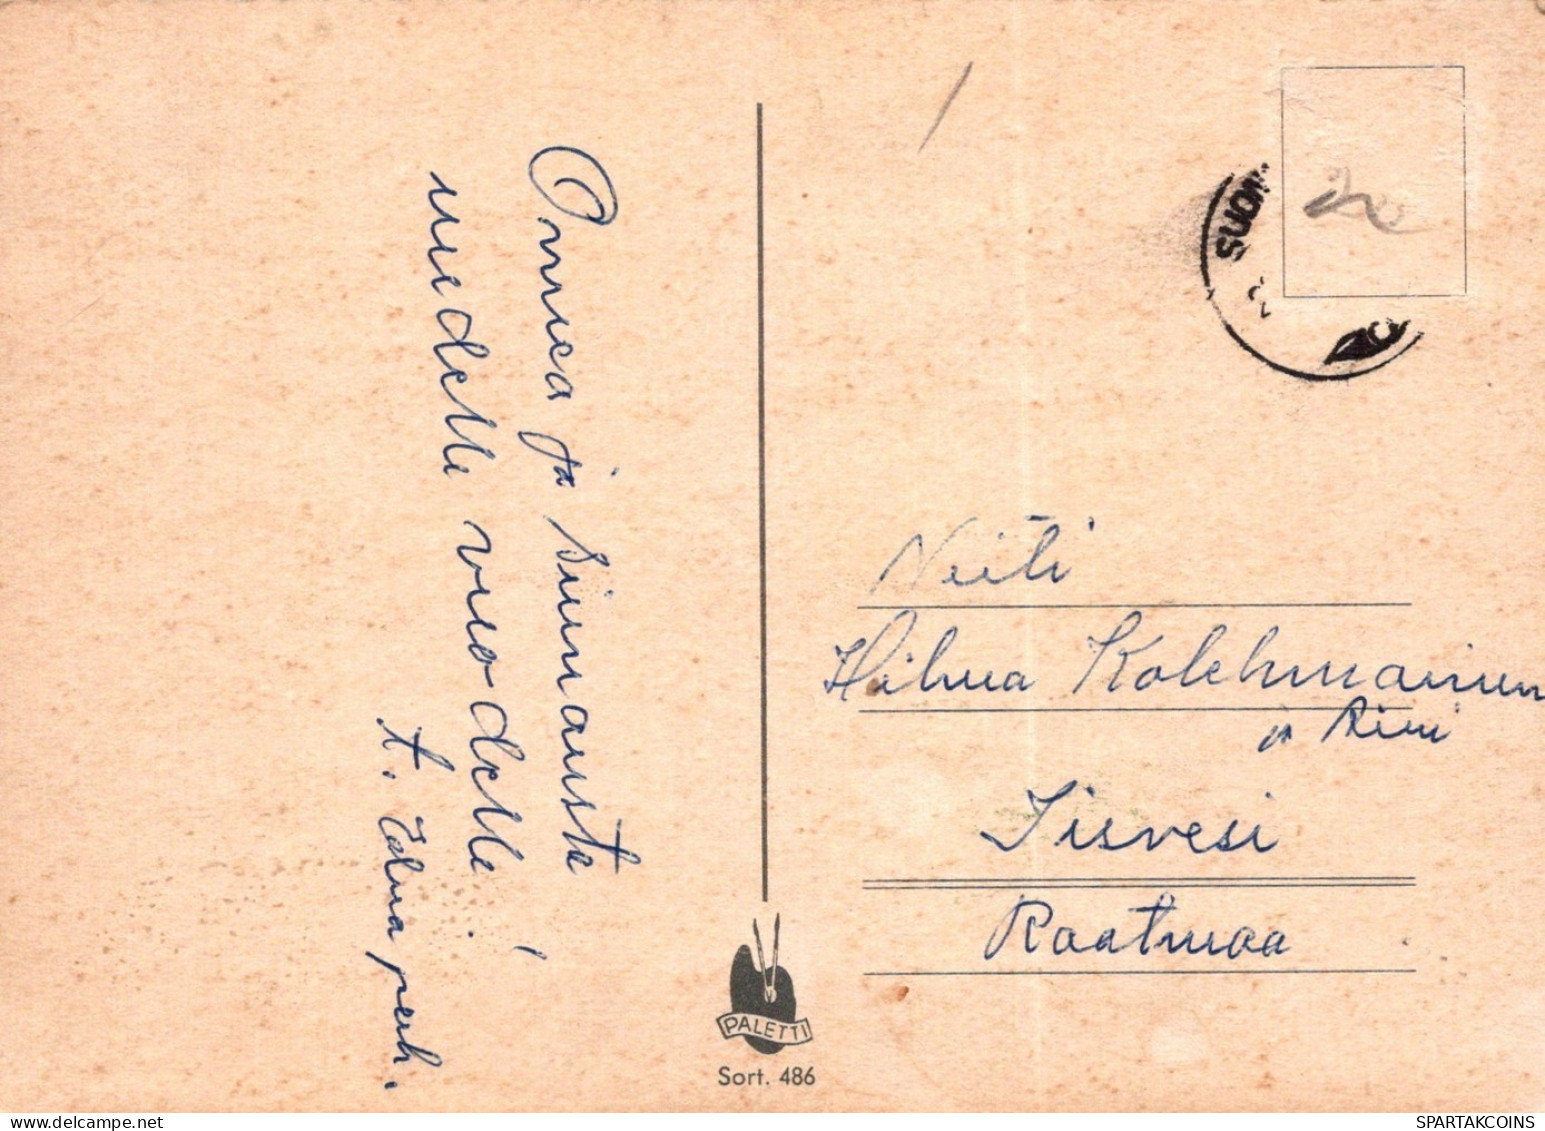 Onnea ja siunausta
uudelle vuodelle!
t. Edna perh.
SUOMI
Neiti
Hilma Kolehmainen
Iisvesi
Raatmaa
PALETTI
Sort. 486
SPARTAKCOINS